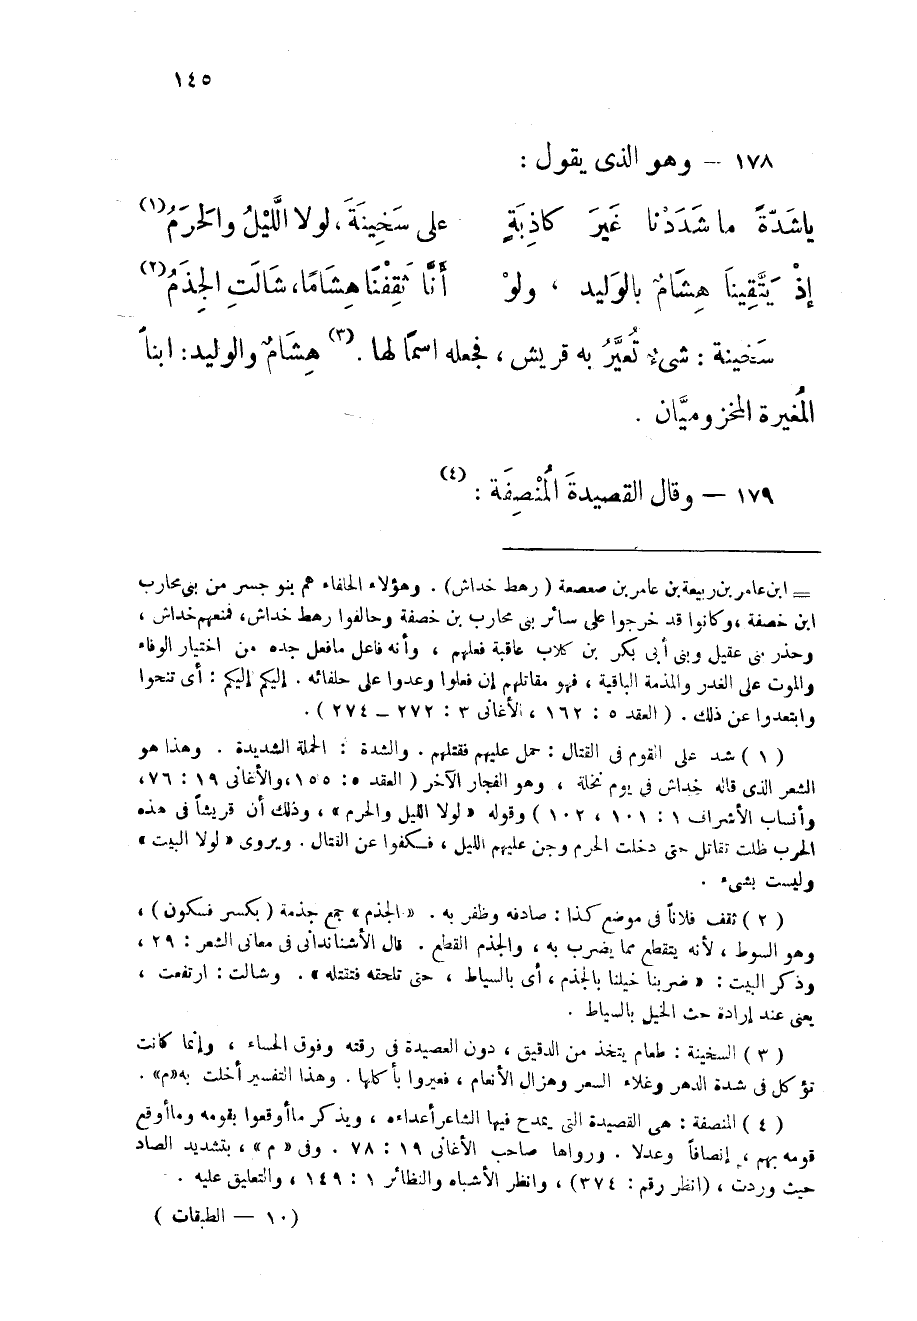 ١٤٥
١٧٨ — وهو الذى يقول :
ياشَدّةً ما شَدَدْنا غَيرَ كاذِبَةٍ على سَخِينَةَ ، لولا اللَّيْلُ والحَرَمُ (١)
إذْ يَتَّقِينا هِشَامٌ بالوَليد ، ولوْ أنَّا ثَقِفْنَا هِشَامًا، شَالَتِ الجِذَمُ (٢)
سَخينة : شىءٌ تُعيَّرُ به قريش ، فجعله اسمًا لها . (٣) هِشَامٌ والوليد : ابنا
المُغيرة المخزوميَّان .
١٧٩ — وقال القصيدةَ المُنْصِفَة : (٤)
= ابن عامر بن ربيعة بن عامر بن صعصعة ( رهط خداش ) . وهؤلاء الحلفاء هم بنو جسر من بنى محارب
ابن خصفة ، وكانوا قد خرجوا على سائر بنى محارب بن خصفة وحالفوا رهط خداش، فمنعهم خداش ،
وحذر بنى عقيل وبنى أبى بكر بن كلاب عاقبة فعلهم ، وأنه فاعل مافعل جده من اختيار الوفاء
والموت على الغدر والمذمة الباقية ، فهو مقاتلهم إن فعلوا وعدوا على حلفائه . إليكم إليكم : أى تنحوا
وابتعدوا عن ذلك . ( العقد ٥ : ١٦٢ ، الأغانى ٣ : ٢٧٢ — ٢٧٤ ) .
( ١ ) شد على القوم فى القتال : حمل عليهم فقتلهم . والشدة : الحملة الشديدة . وهذا هو
الشعر الذى قاله خداش فى يوم نخلة ، وهو الفجار الآخر ( العقد ٥ : ١٥٥ ، والأغانى ١٩ : ٧٦ ،
وأنساب الأشراف ١ : ١٠١ ، ١٠٢ ) وقوله « لولا الليل والحرم » ، وذلك أن قريشاً فى هذه
الحرب ظلت تقاتل حتى دخلت الحرم وجن عليهم الليل ، فكفوا عن القتال . ويروى « لولا البيت »
وليست بشىء .
( ٢ ) ثقف فلاناً فى موضع كذا : صادفه وظفر به . « الجذم » جمع جذمة ( بكسر فسكون ) ،
وهو السوط ، لأنه يتقطع مما يضرب به ، والجذم القطع . قال الأشناندانى فى معانى الشعر : ٢٩ ،
وذكر البيت : « ضربنا خيلنا بالجذم ، أى بالسياط ، حتى تلحقه فتقتله » . وشالت : ارتفعت ،
يعنى عند إرادة حث الخيل بالسياط .
( ٣ ) السخينة : طعام يتخذ من الدقيق ، دون العصيدة فى رقته وفوق الحساء ، وإنما كانت
تؤكل فى شدة الدهر وغلاء السعر وهزال الأنعام ، فعيروا بأكلها . وهذا التفسير أخلت به«م» .
( ٤ ) المنصفة : هى القصيدة التى يمدح فيها الشاعر أعداءه ، ويذكر ماأوقعوا بقومه وماأوقع
قومه بهم ، إنصافاً وعدلا . ورواها صاحب الأغانى ١٩ : ٧٨ . وفى « م » ، بتشديد الصاد
حيث وردت ، (انظر رقم : ٣٧٤) ، وانظر الأشباه والنظائر ١ : ١٤٩ ، والتعليق عليه .
( ١٠ — الطبقات )